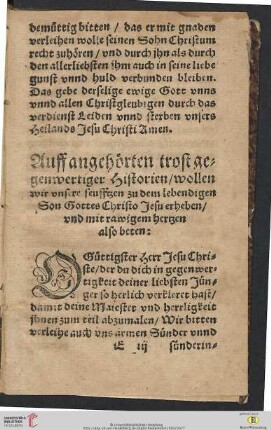 demüttig bitten / das er mit gnaden
verleihen wolle seinen Sohn Christum
recht zuhören / vnd durch jhn als durch
den allerliebsten jhm auch in seine liebe
gunst vnnd huld verbunden bleiben.
Das gebe derselige ewige Gott vnns
vnnd allen Christgleubigen durch das
verdienst Leiden vnnd sterben vnsers
Heilands Jesu Christi Amen.
Auff angehörten trost ge-
genwertiger Historien / wollen
wir vnsere seufftzen zu dem lebendigen
Son Gottes Christo Jesu erheben /
vnd mit rawigem hertzen
also beten:
O Güttigster Herr Jesu Chri-
ste / der du dich in gegenwer-
tigkeit deiner liebsten Jün-
ger so herlich verkleret hast /
damit deine Maiestet vnd herrligkeit
jhnen zum teil abzumalen / Wir bitten
verleihe auch vns armen Sünder vnnd
E iij sünderin-